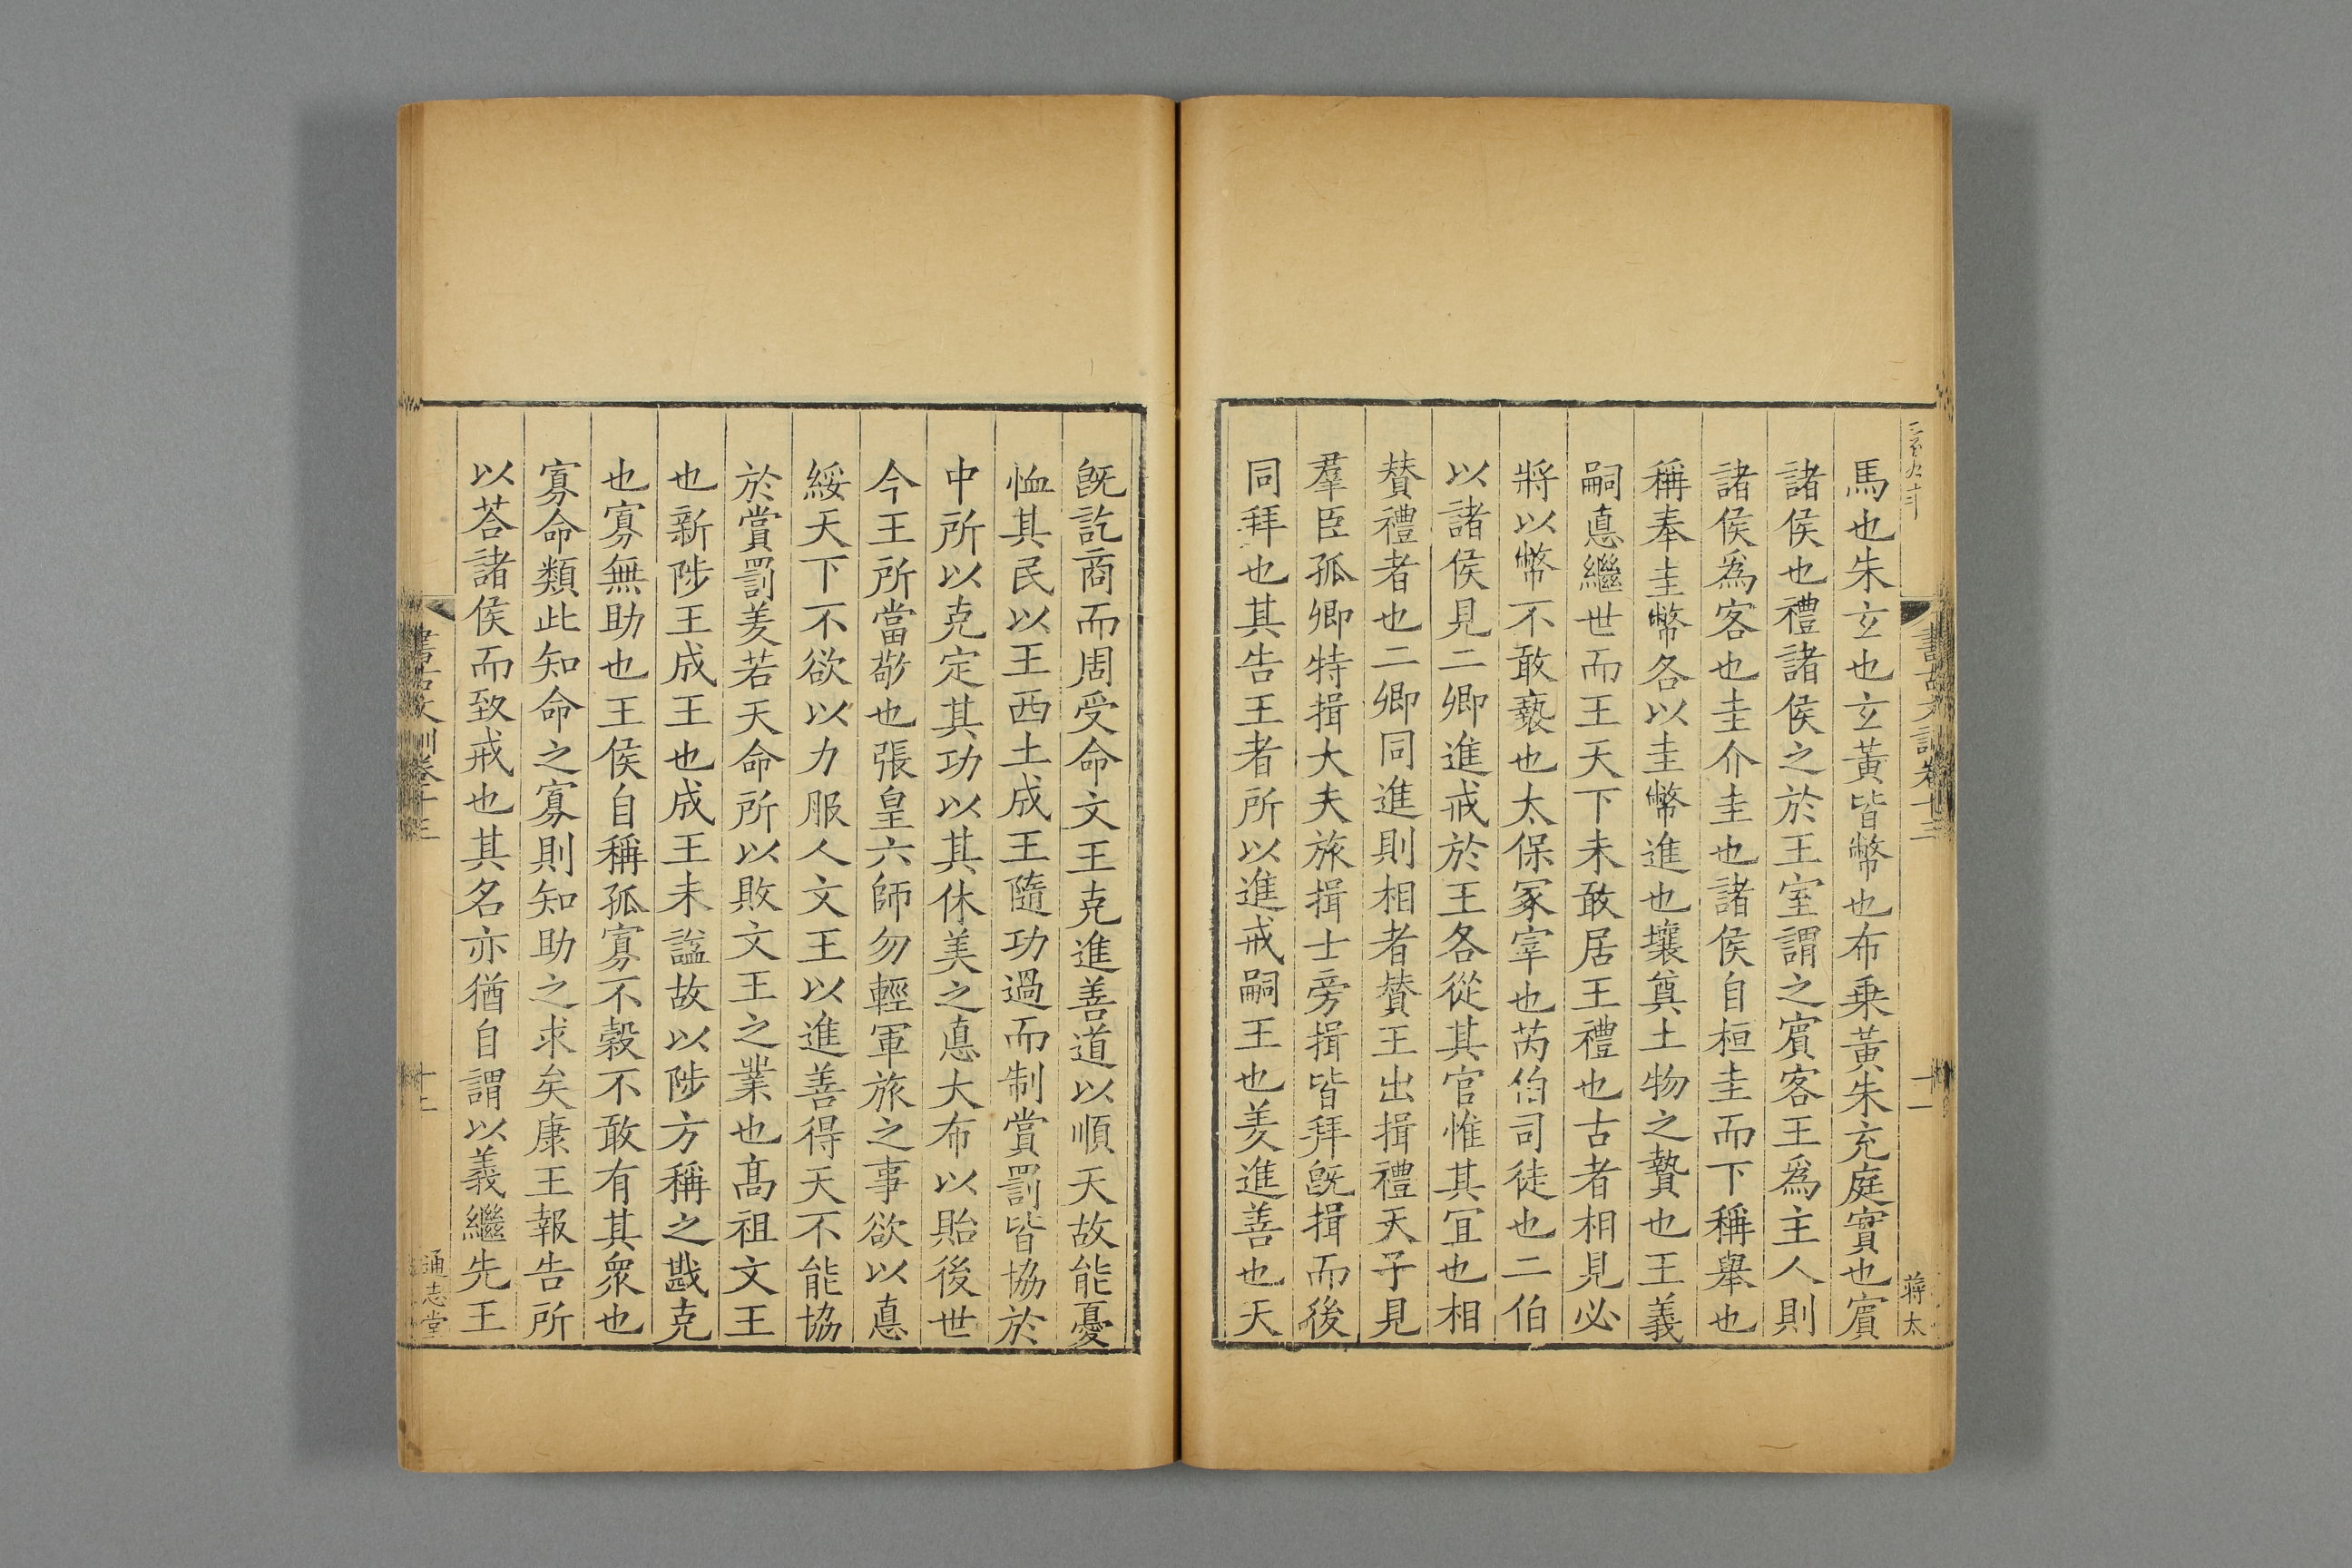 書古文訓卷十三
十一
蔣太
馬也朱玄也玄黃皆幣也布乗黃朱充庭實也賔
諸侯也禮諸侯之於王室謂之賔客王爲主人則
諸侯爲客也圭介圭也諸侯自桓圭而下稱舉也
稱奉圭幣各以圭幣進也壤奠土物之贄也王義
嗣悳繼世而王天下未敢居王禮也古者相見必
將以幣不敢褻也太保冢宰也芮伯司徒也二伯
以諸侯見二卿進戒於王各從其官惟其冝也相
賛禮者也二卿同進則相者賛王出揖禮天子見
羣臣孤卿特揖大夫旅揖士旁揖皆拜旣揖而後
同拜也其告王者所以進戒嗣王也羑進善也天
旣訖商而周受命文王克進善道以順天故能憂
恤其民以王西土成王隨功過而制賞罰皆協於
中所以克定其功以其休美之悳大布以貽後世
今王所當敬也張皇六師勿輕軍旅之事欲以悳
綏天下不欲以力服人文王以進善得天不能協
於賞罰羑若天命所以敗文王之業也髙祖文王
也新陟王成王也成王未諡故以陟方稱之戡克
也寡無助也王侯自稱孤寡不穀不敢有其衆也
寡命類此知命之寡則知助之求矣康王報告所
以荅諸侯而致戒也其名亦猶自謂以義繼先王
書古文訓卷十三
十二
通志堂